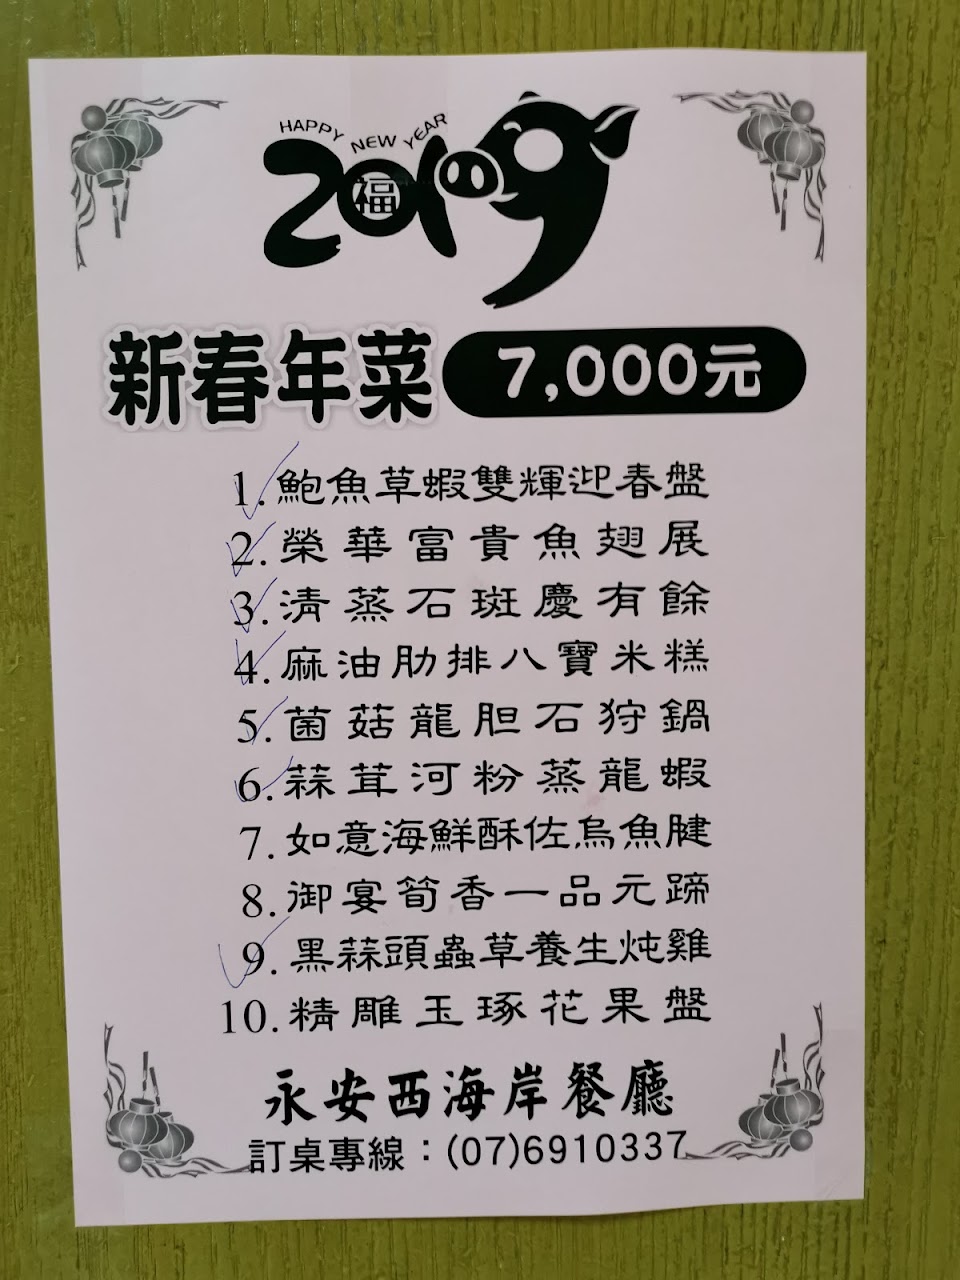 HAPPY NEW YEAR
2019
福
新春年菜 7,000元
1.鮑魚草蝦雙輝迎春盤
2.榮華富貴魚翅展
3.清蒸石斑慶有餘
4.麻油肋排八寶米糕
5.菌菇龍胆石狩鍋
6.蒜茸河粉蒸龍蝦
7.如意海鮮酥佐烏魚腱
8.御宴筍香一品元蹄
9.黑蒜頭蟲草養生炖雞
10.精雕玉琢花果盤
永安西海岸餐廳
訂桌專線：(07)6910337